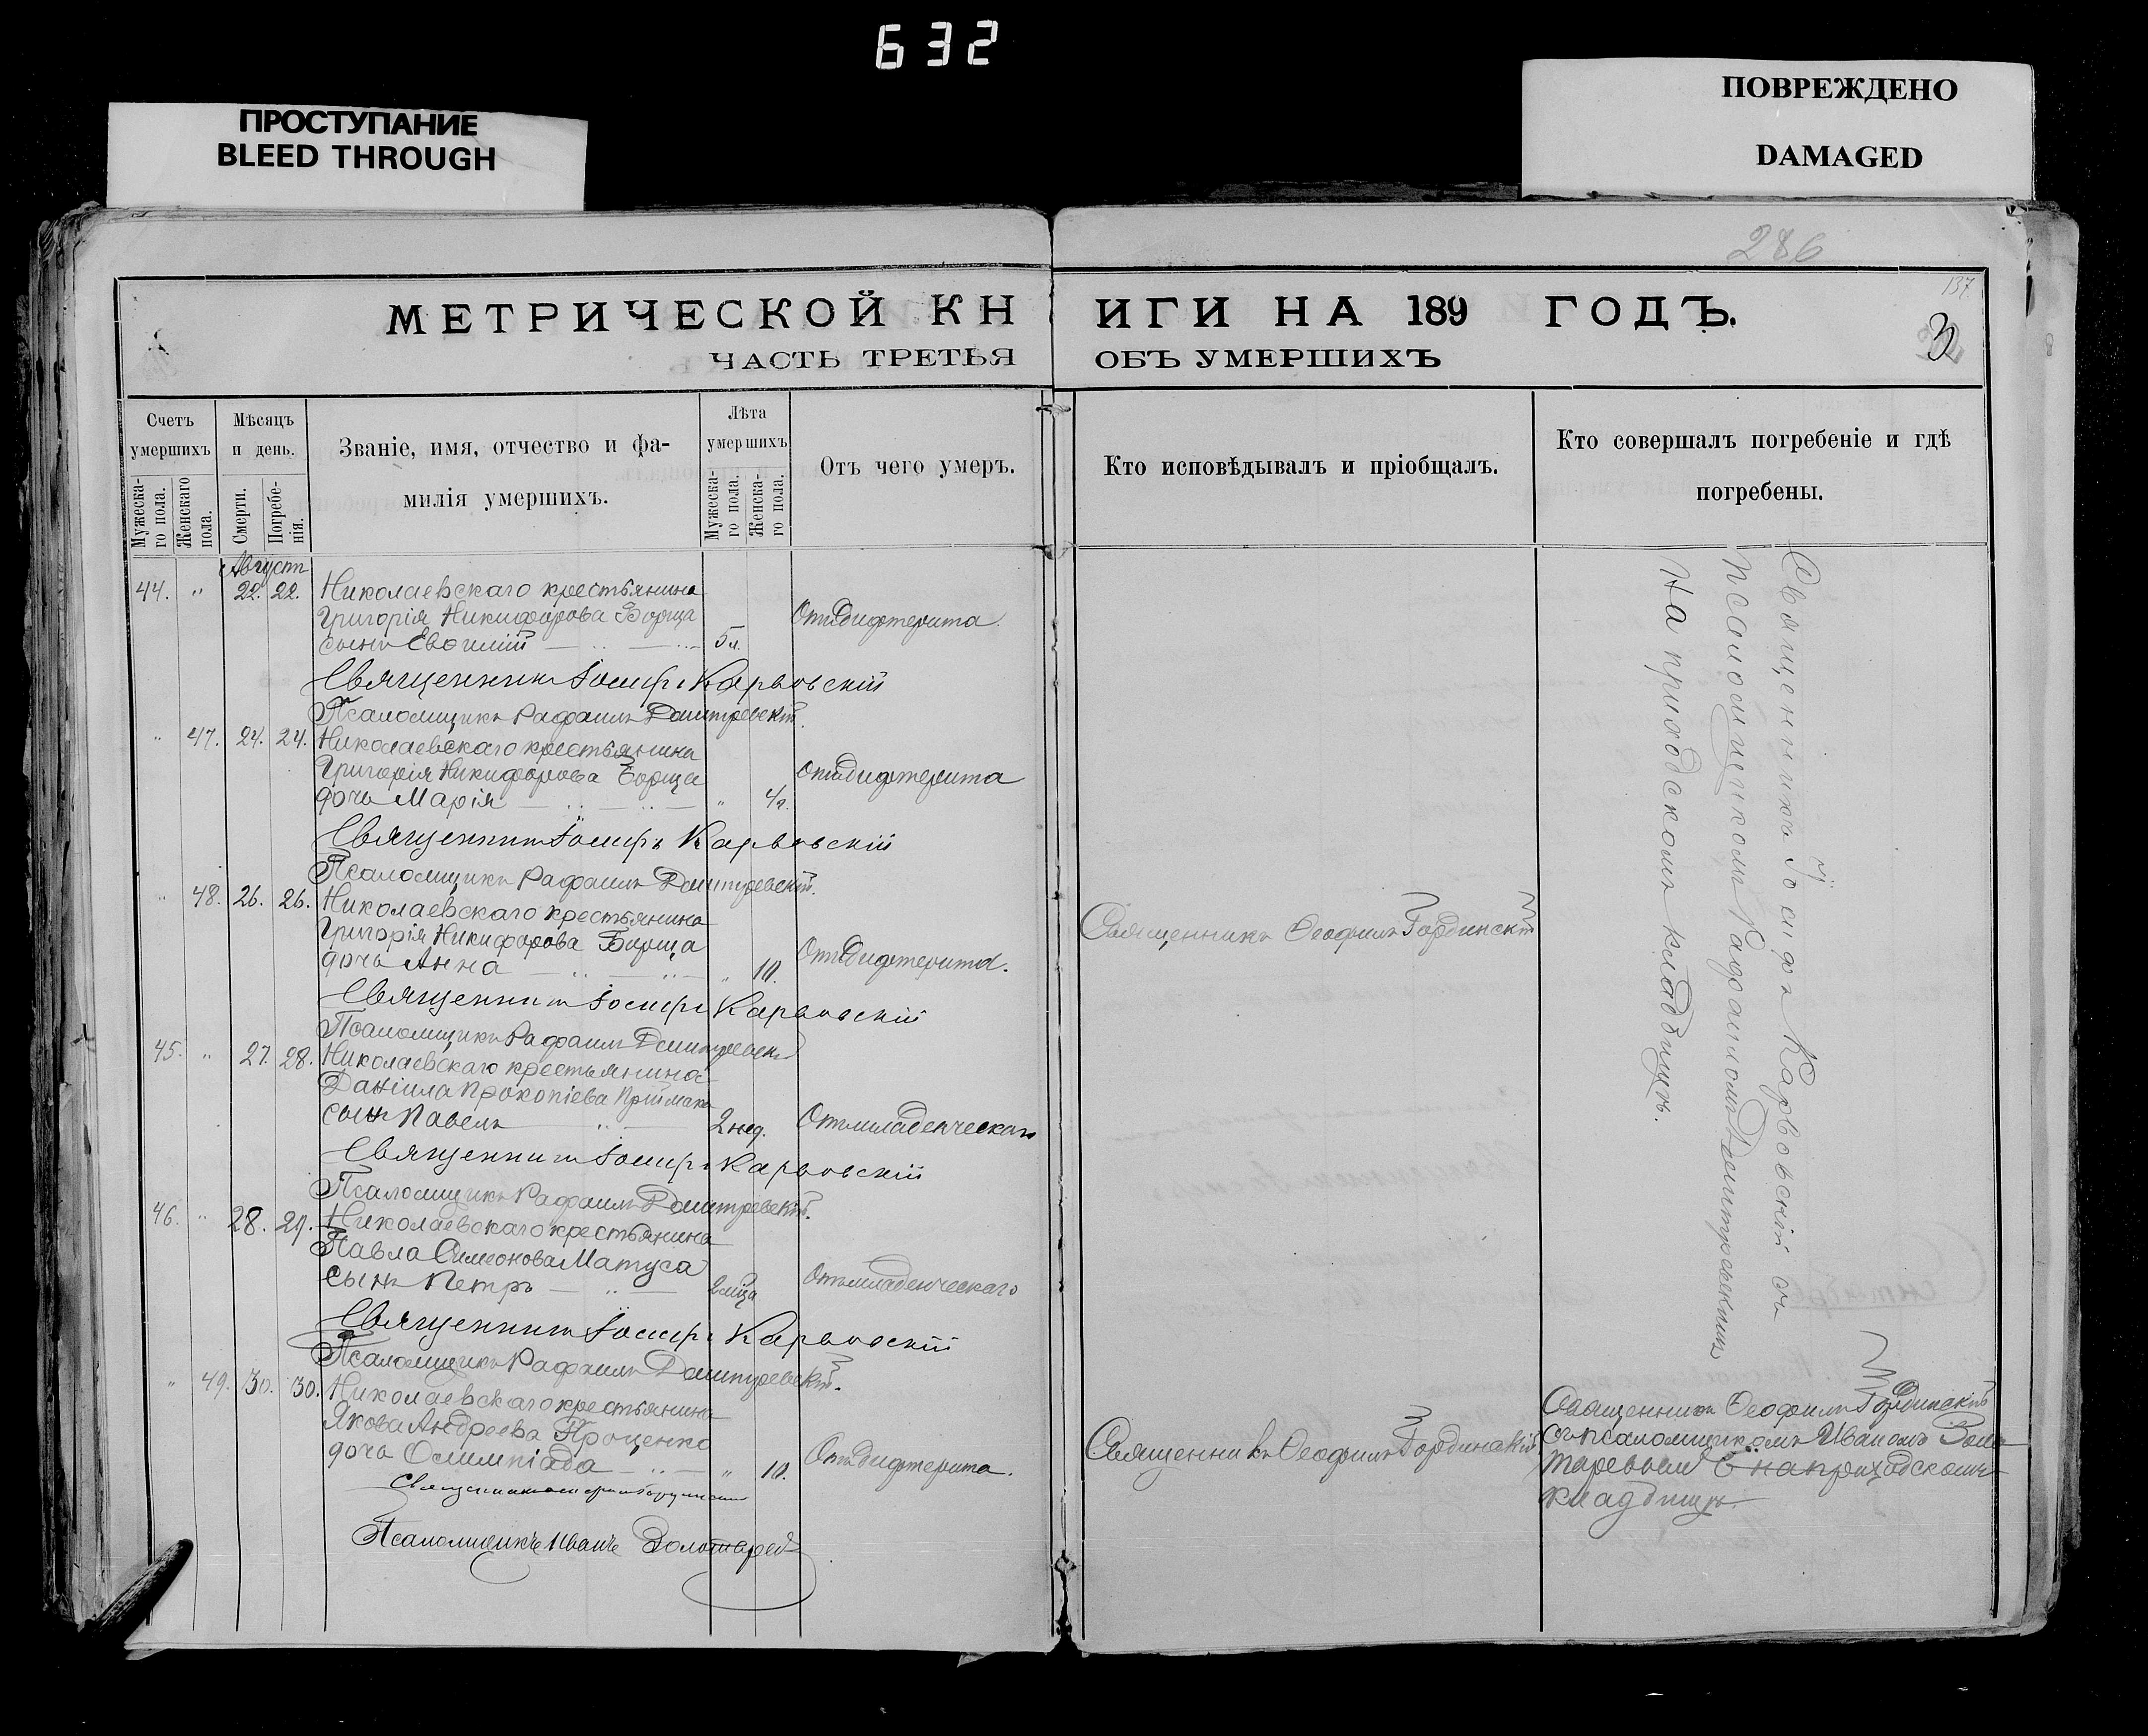 632
ПРОСТУПАНИЕ
BLEED THROUGH
ПОВРЕЖДЕНО
DAMAGED
286
137
МЕТРИЧЕСКОЙ КНИГИ НА 189 ГОДЪ.
3
ЧАСТЬ ТРЕТЬЯ ОБЪ УМЕРШИХЪ
Счетъ умершихъ
Мужеска-го пола.
Женскаго пола.
Мѣсяцъ и день.
Смерти.
Погребе-нія.
Званіе, имя, отчество и фа-
милія умершихъ.
Лѣта умершихъ
Мужеска-го пола.
Женска-го пола.
Отъ чего умеръ.
Кто исповѣдывалъ и пріобщалъ.
Кто совершалъ погребеніе и гдѣ
погребены.
Августъ
44. " 22. 22. Николаевскаго крестьянина
Григорія Никифорова Борща
Отъ дифтерита.
сынъ 5 л.
Священникъ Іосифъ Карвовскій
Псаломщикъ Рафаилъ Дмитревскій.
" 47. 24. 24. Николаевскаго крестьянина
Григорія Никифорова Борща
Отъ дифтерита
дочь Марія " 4 л.
Священникъ Іосифъ Карвовскій
Псаломщикъ Рафаилъ Дмитревскій.
" 48. 26. 26. Николаевскаго крестьянина
Григорія Никифорова Борща
Отъ дифтерита.
дочь Анна " 10.
Священникъ Ѳеофилъ Гординскій
Священникъ Іосифъ Карвовскій
Псаломщикъ Рафаилъ Дмитревскій
45. " 27. 28. Николаевскаго крестьянина
Даніила Прокопіева Приймака
сынъ Павелъ 2 нед. Отъ младенческаго
Священникъ Іосифъ Карвовскій
Псаломщикъ Рафаилъ Дмитревскій.
46. " 28. 29. Николаевскаго крестьянина
Павла Симеонова Матуса
сынъ Петръ 2 мѣца Отъ младенческаго
Священникъ Іосифъ Карвовскій
Псаломщикъ Рафаилъ Дмитревскій.
" 49. 30. 30. Николаевскаго крестьянина
Якова Андреева Проценко
дочь Олимпіада " 10. Отъ дифтерита.
Священникъ Ѳеофилъ Гординскій
Псаломщикъ Иванъ Золотарев
Священникъ Іосифъ Карвовскій съ
псаломщикомъ Рафаиломъ Дмитревскимъ
на приходскомъ кладбищѣ.
Священникъ Ѳеофилъ Гординскій
съ псаломщикомъ Иваномъ Золо
таревым на приходскомъ
кладбищѣ